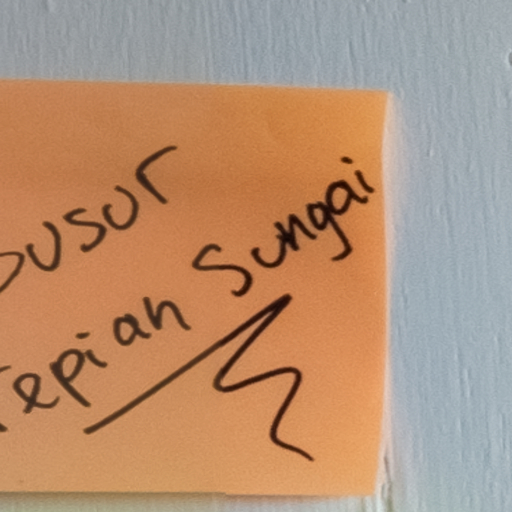 Susur
Tepian Sungai